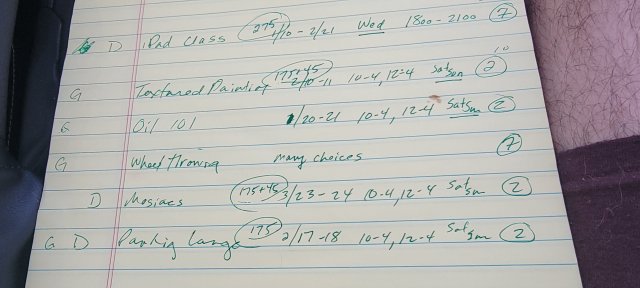 D iPad Class 275 1/10 - 2/21 Wed 1800 - 2100 7
10
G Textured Painting 175+45 2/10-11 10-4, 12-4 Sat Sun 2
G Oil 101 1/20-21 10-4, 12-4 Sat Sun 2
G Wheel throwing many choices 7
D Mosiacs 175+45 3/23-24 10-4, 12-4 Sat Sun 2
G D Large 175 2/17-18 10-4, 12-4 Sat Sun 2